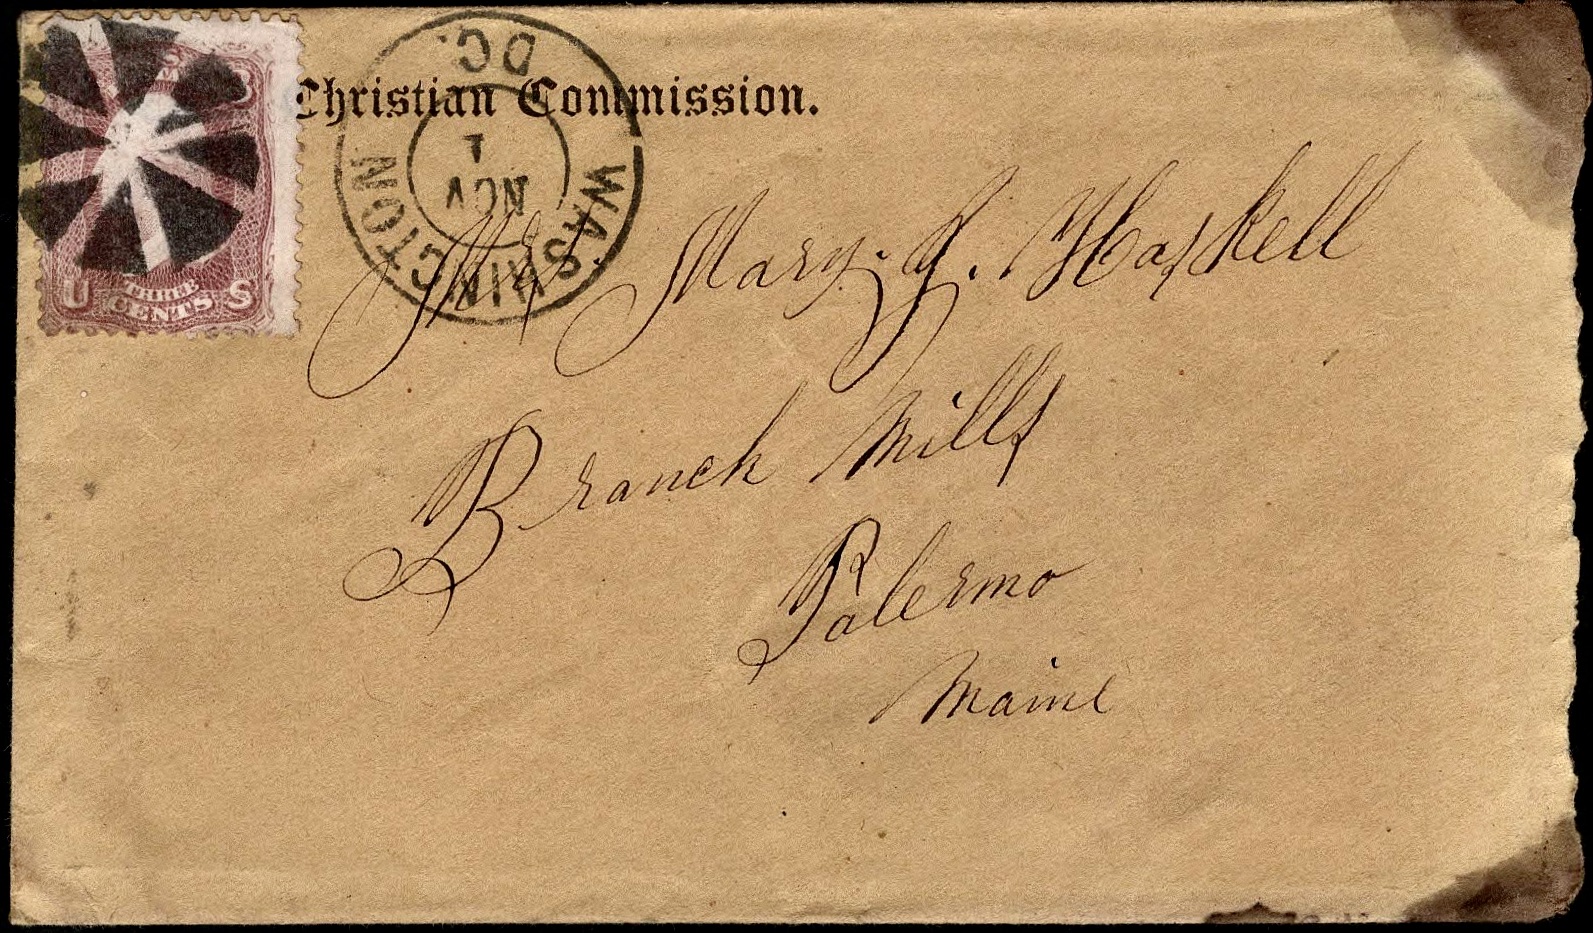 Christian Commission.
WASHINGTON
D.C.
NOV
1
U THREE S
CENTS
Mrs. Mary. J. Haskell
Branch Mills
Palermo
Maine